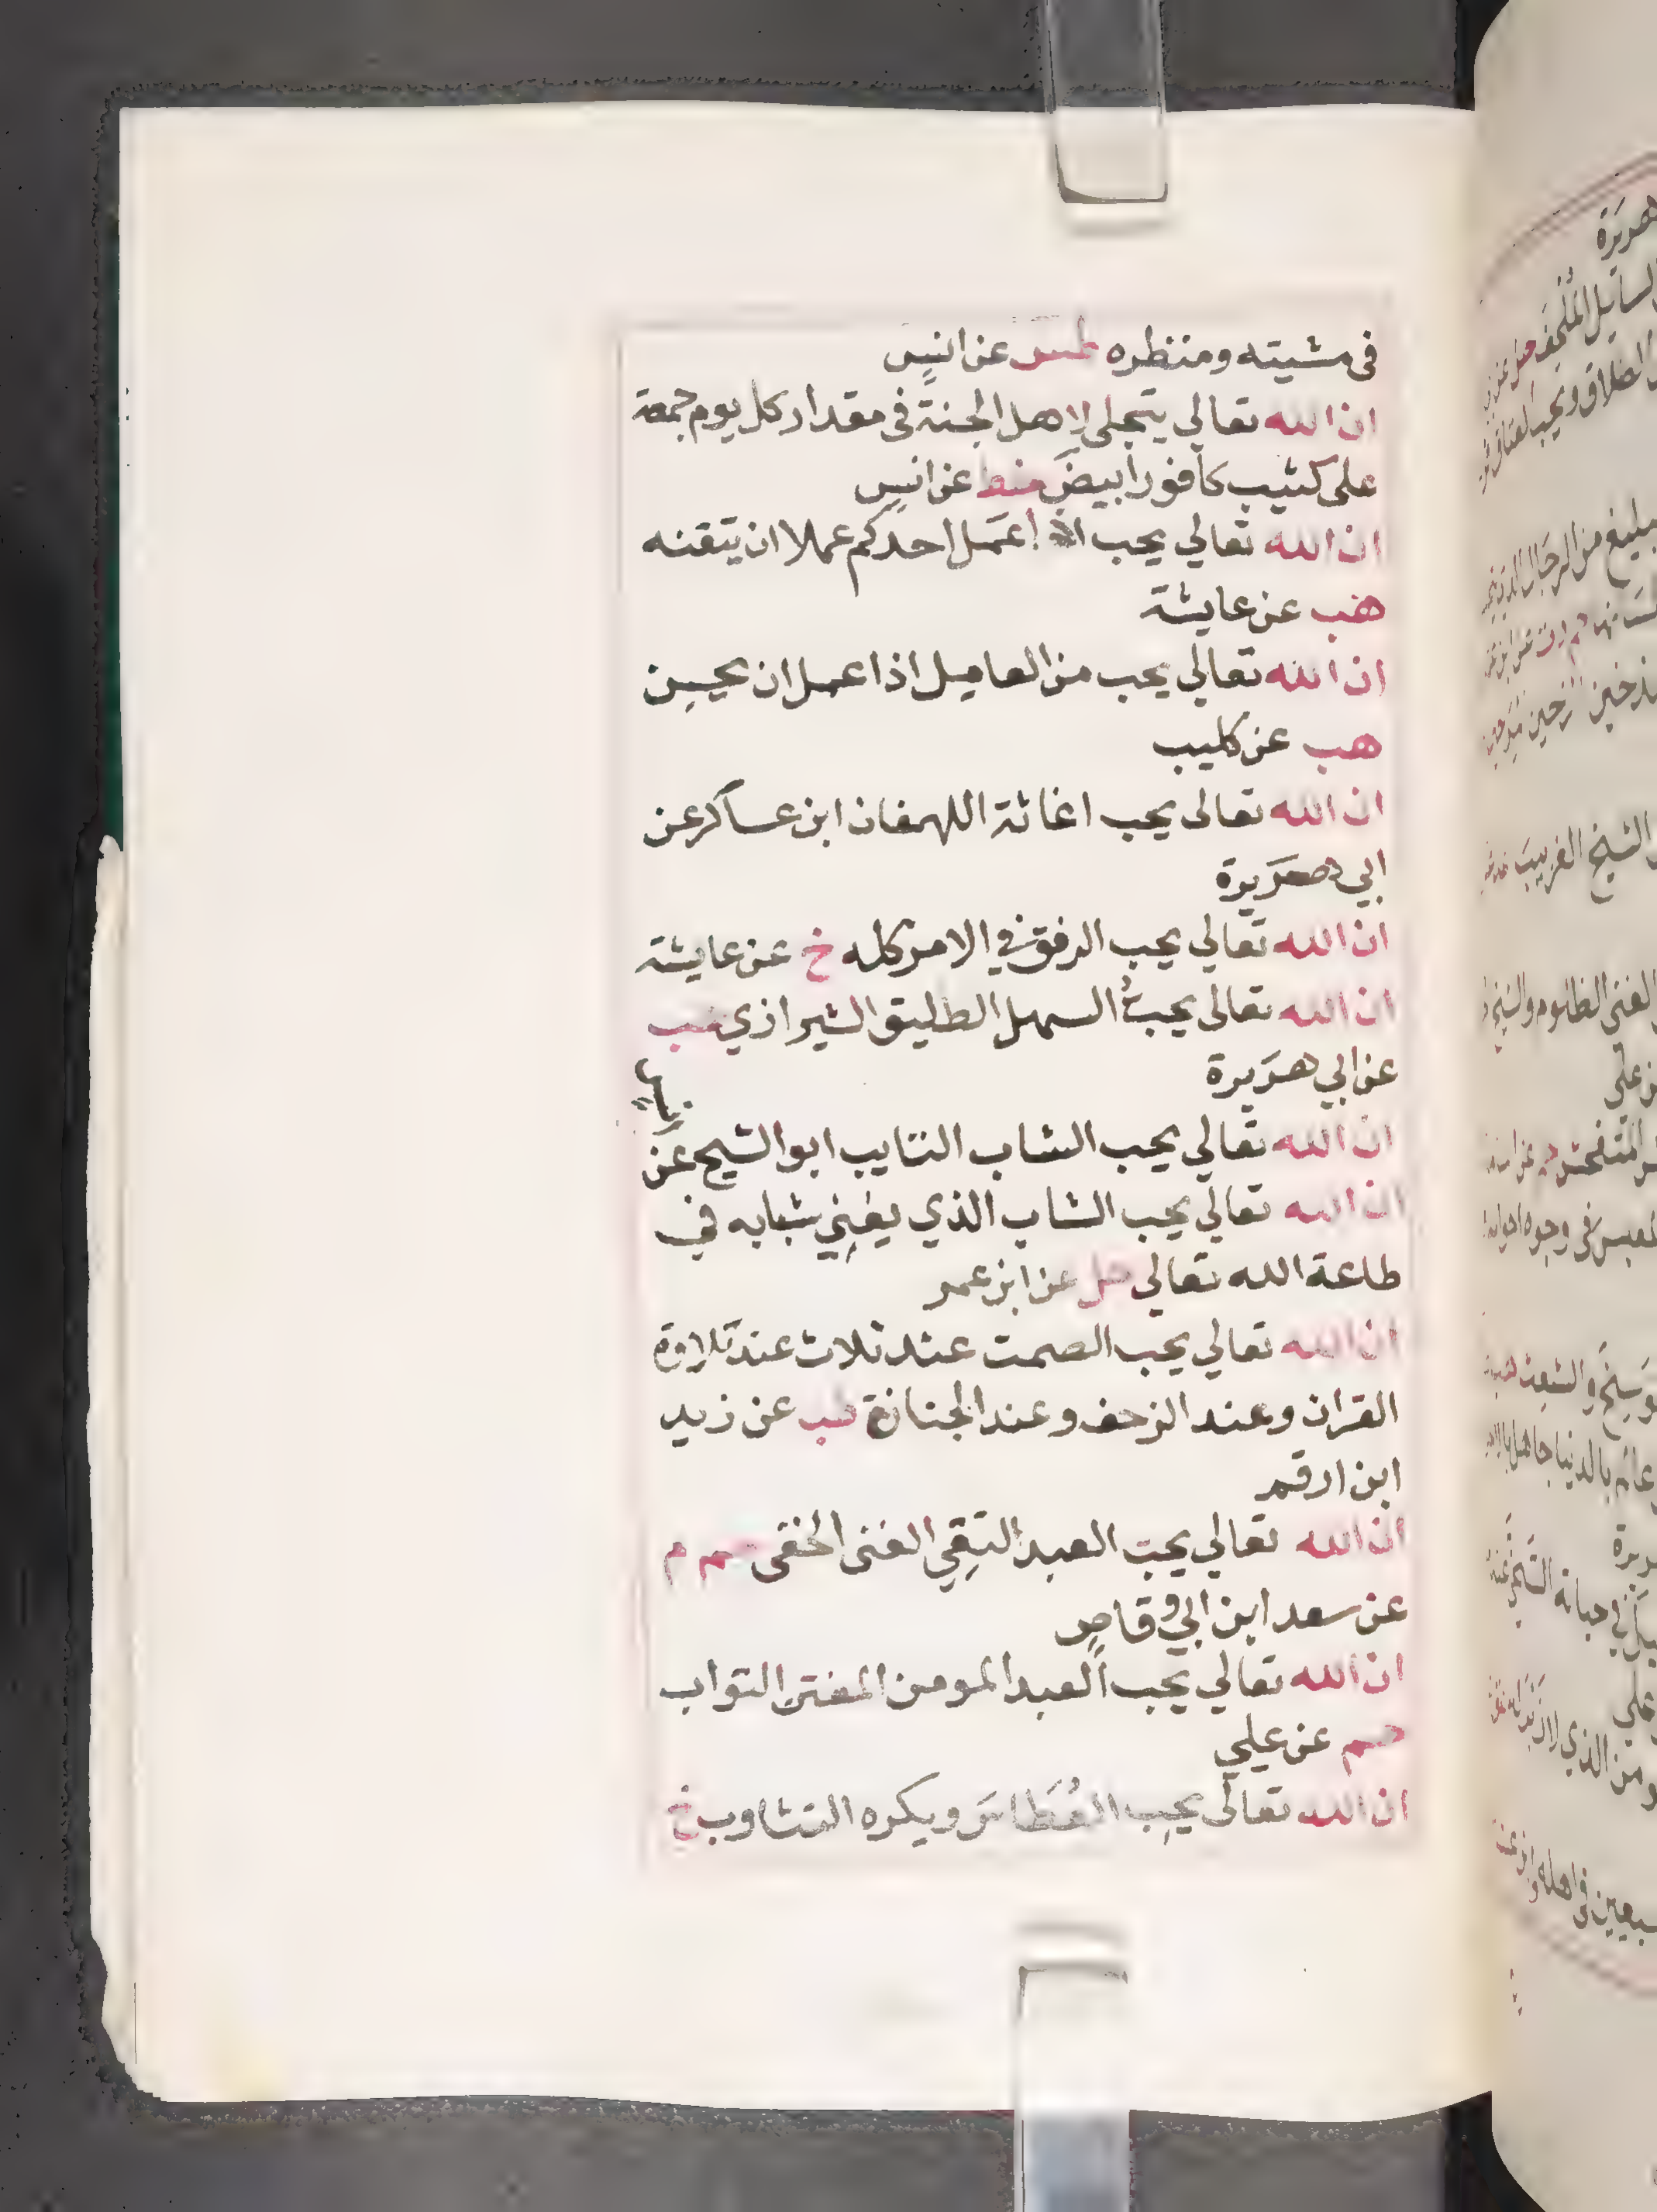 فى مشيته ومنظره طس عن انس
ان الله تعالي يتجلى لاهل الجنة فى مقدار كل يوم جمعة
على كثيب كافور ابيض خط عن انس
ان الله تعالي يحب اذا عمل احدكم عملا ان يتقنه
هب عن عايشة
ان الله تعالي يحب من العامل اذا عمل ان يحسن
هب عن كليب
ان الله تعالى يحب اغاثة اللهفان ابن عساكر عن
ابي هريرة
ان الله تعالي يحب الرفق في الامر كله خ عن عايشة
ان الله تعالى يحب السهل الطليق الشيرازي هب
عن ابي هريرة
ان الله تعالي يحب الشاب التايب ابو الشيح عن
ان الله تعالي يحب الشاب الذي يفني شبابه في
طاعة الله تعالي حل عن ابن عمر
ان الله تعالي يحب الصمت عند ثلاث عند تلاوة
القران وعند الزحف وعند الجنازة طب عن زيد
ابن ارقم
ان الله تعالي يحب العبد التقي الغنى الخفى حم م
عن سعد ابن ابي وقاص
ان الله تعالي يحب العبد المومن المفتن التواب
حم عن علي
ان الله تعالى يحب العطاس ويكره التثاوب خ